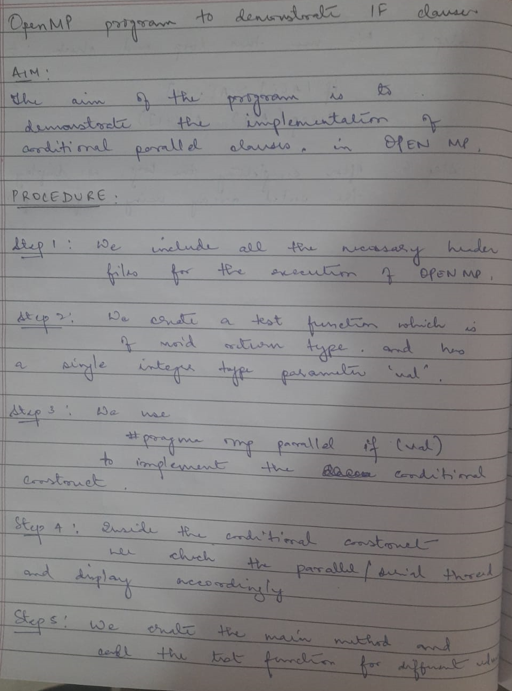 OpenMP program to demonstrate IF clauses
AIM:
The aim of the program is to
demonstrate the implementation of
conditional parallel clauses. in OPEN MP.
PROCEDURE:
Step 1: We include all the necessary header
files for the execution of OPENMP.
Step 2: We create a test function which is
of void return type. and has
a single integer type parameter 'val'.
Step 3: We use
#pragma omp parallel if (val)
to implement the conditional
construct.
Step 4: Inside the conditional construct
we check the parallel/serial thread
and display accordingly
Step 5: We create the main method and
call the test function for different